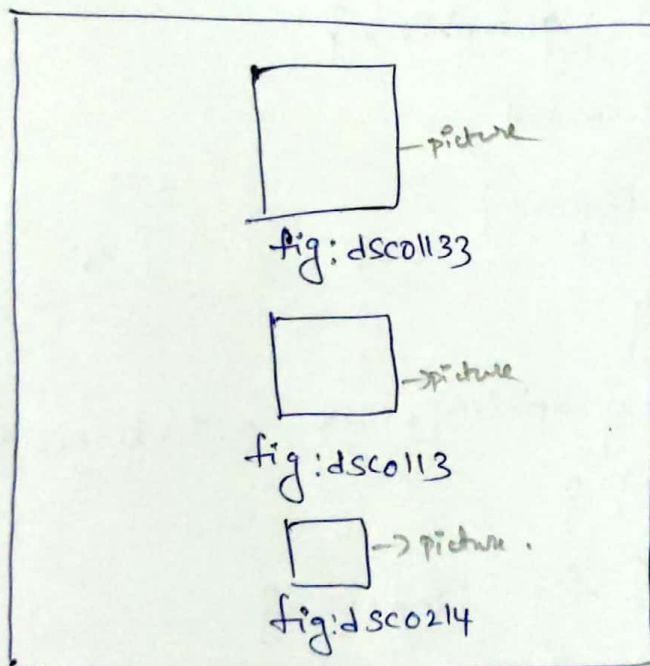 picture
fig: dsco1133
picture
fig: dsco113
picture.
fig: dsco214